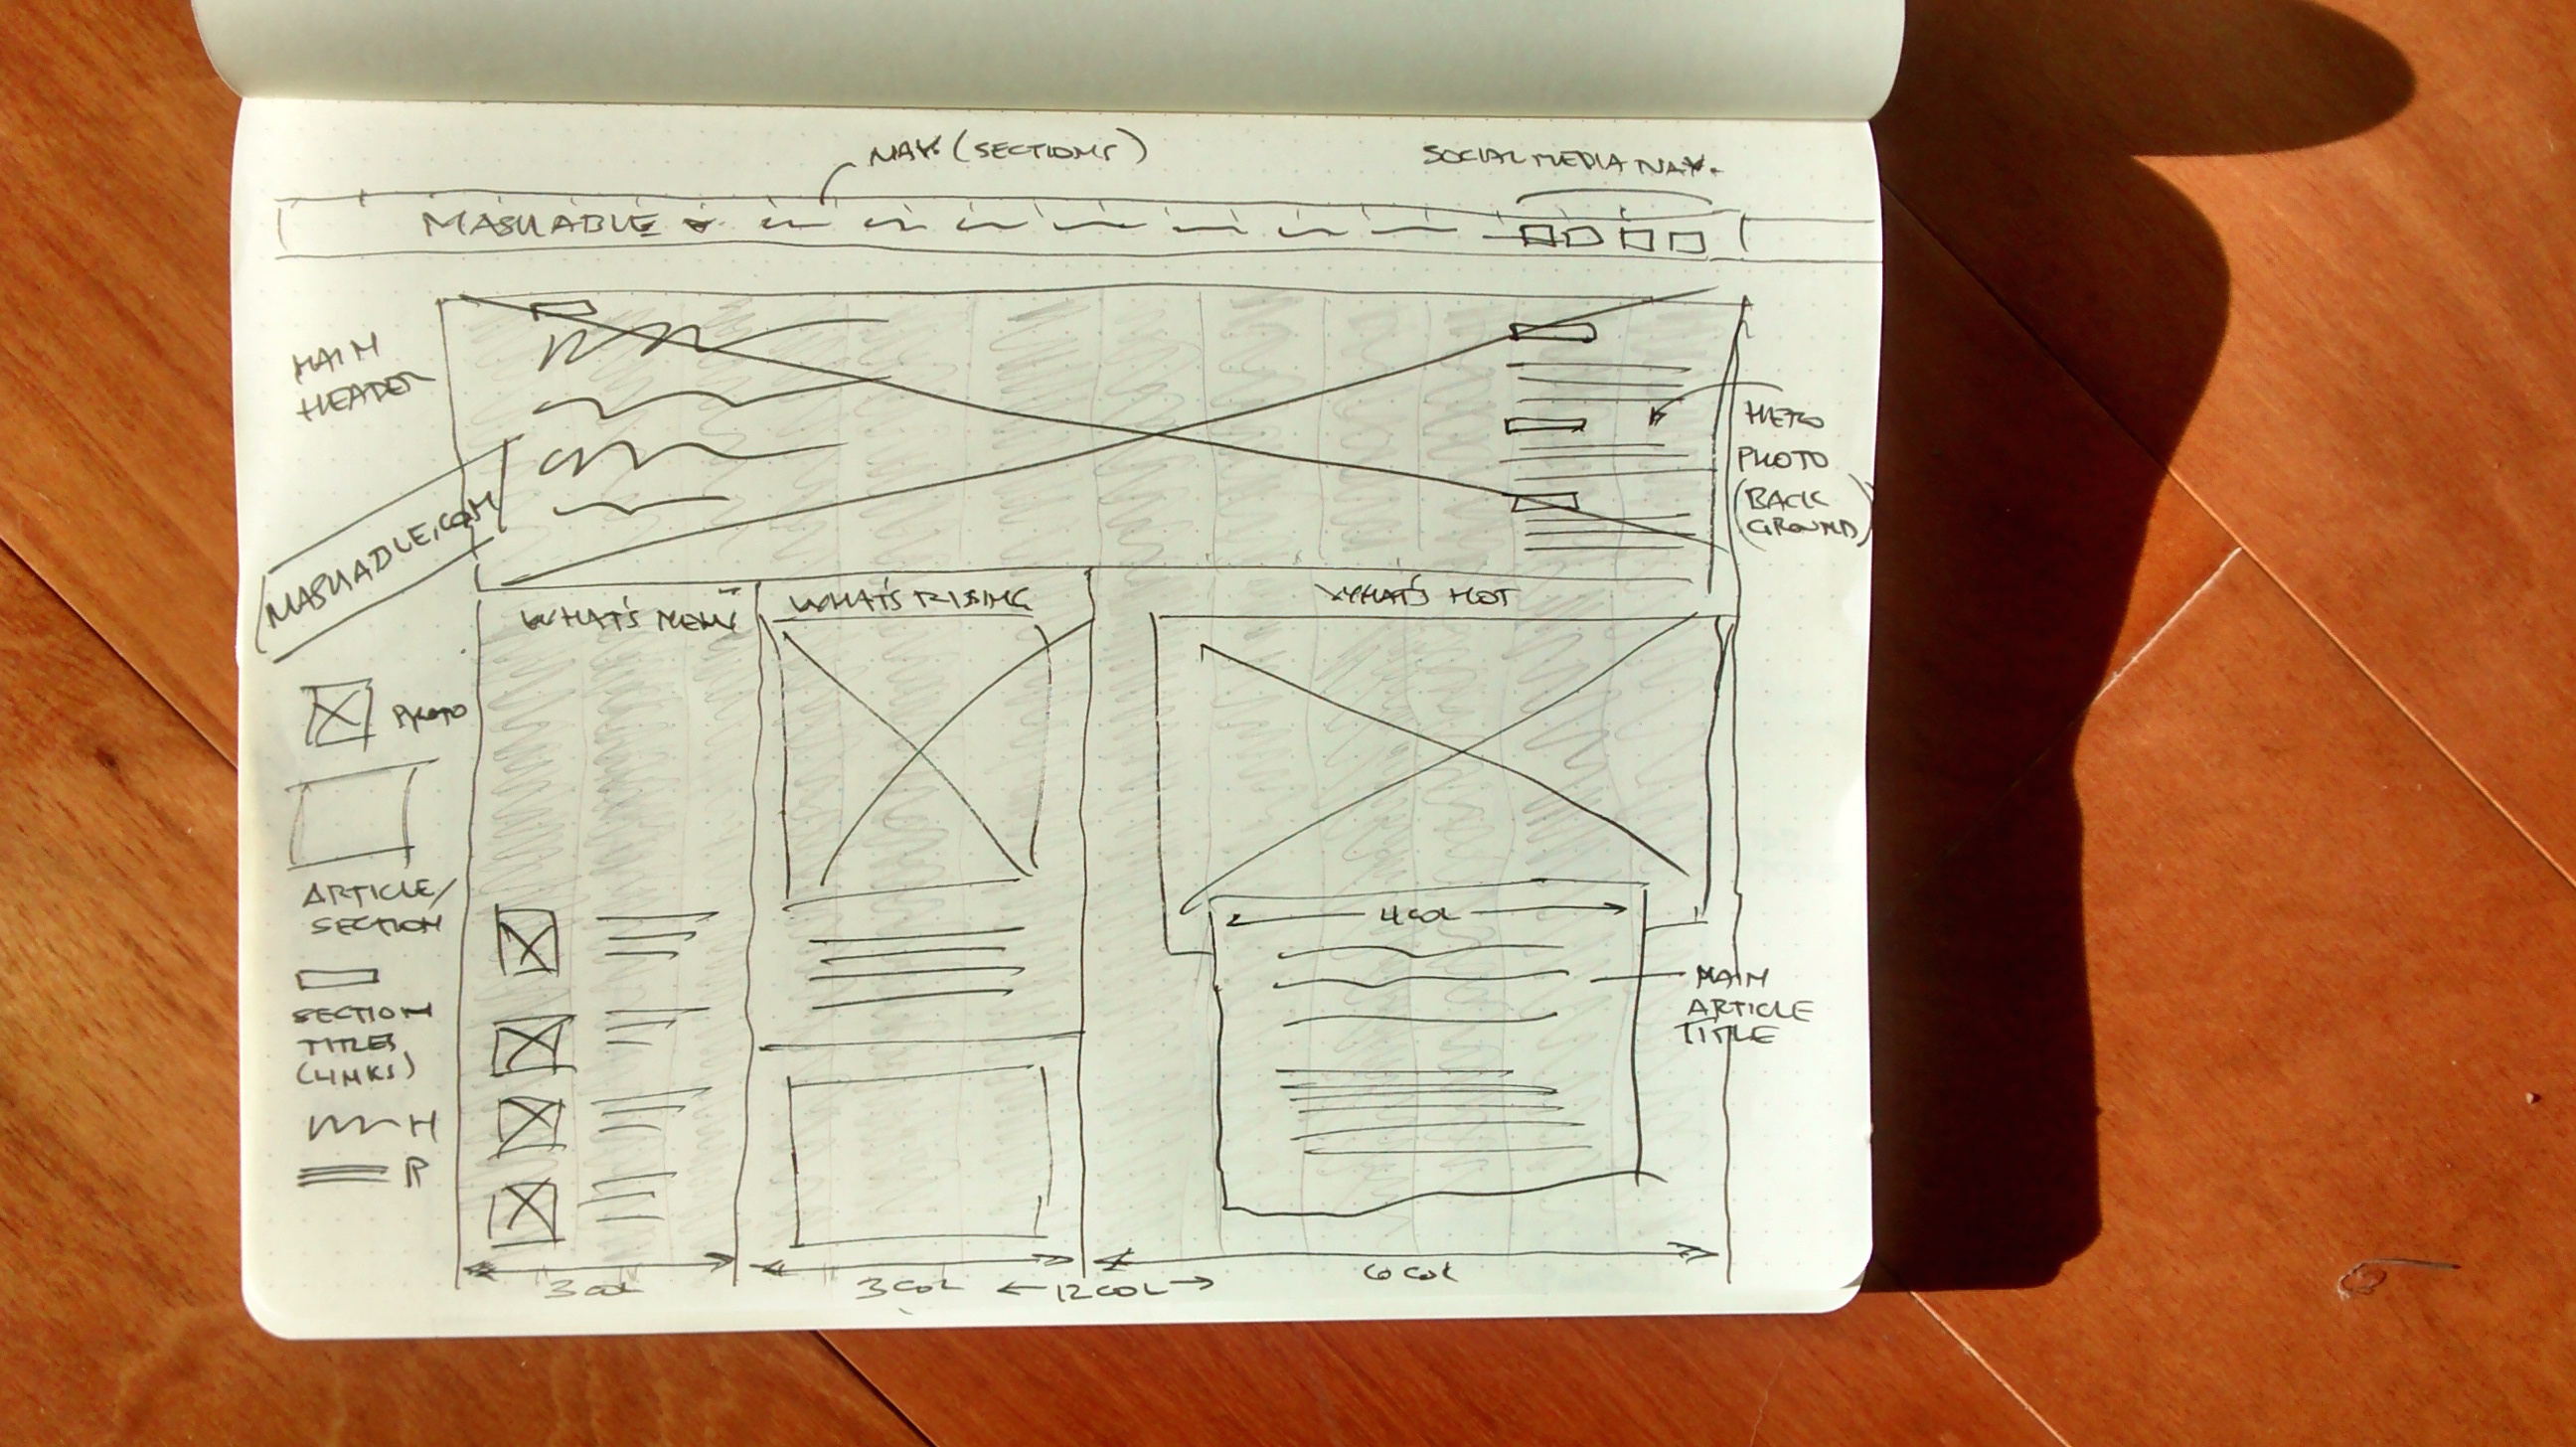 NAV. (SECTIONS)
SOCIAL MEDIA NAV.
MASHABLE
MAIN
HEADER
HERO
PHOTO
(BACK
GROUND)
MASHABLE.COM
WHAT'S NEW
WHAT'S RISING
WHAT'S HOT
PHOTO
ARTICLE/
SECTION
SECTION
TITLES
(LINKS)
H
R
4 COL
MAIN
ARTICLE
TITLE
3 COL
3 COL
12 COL
6 COL